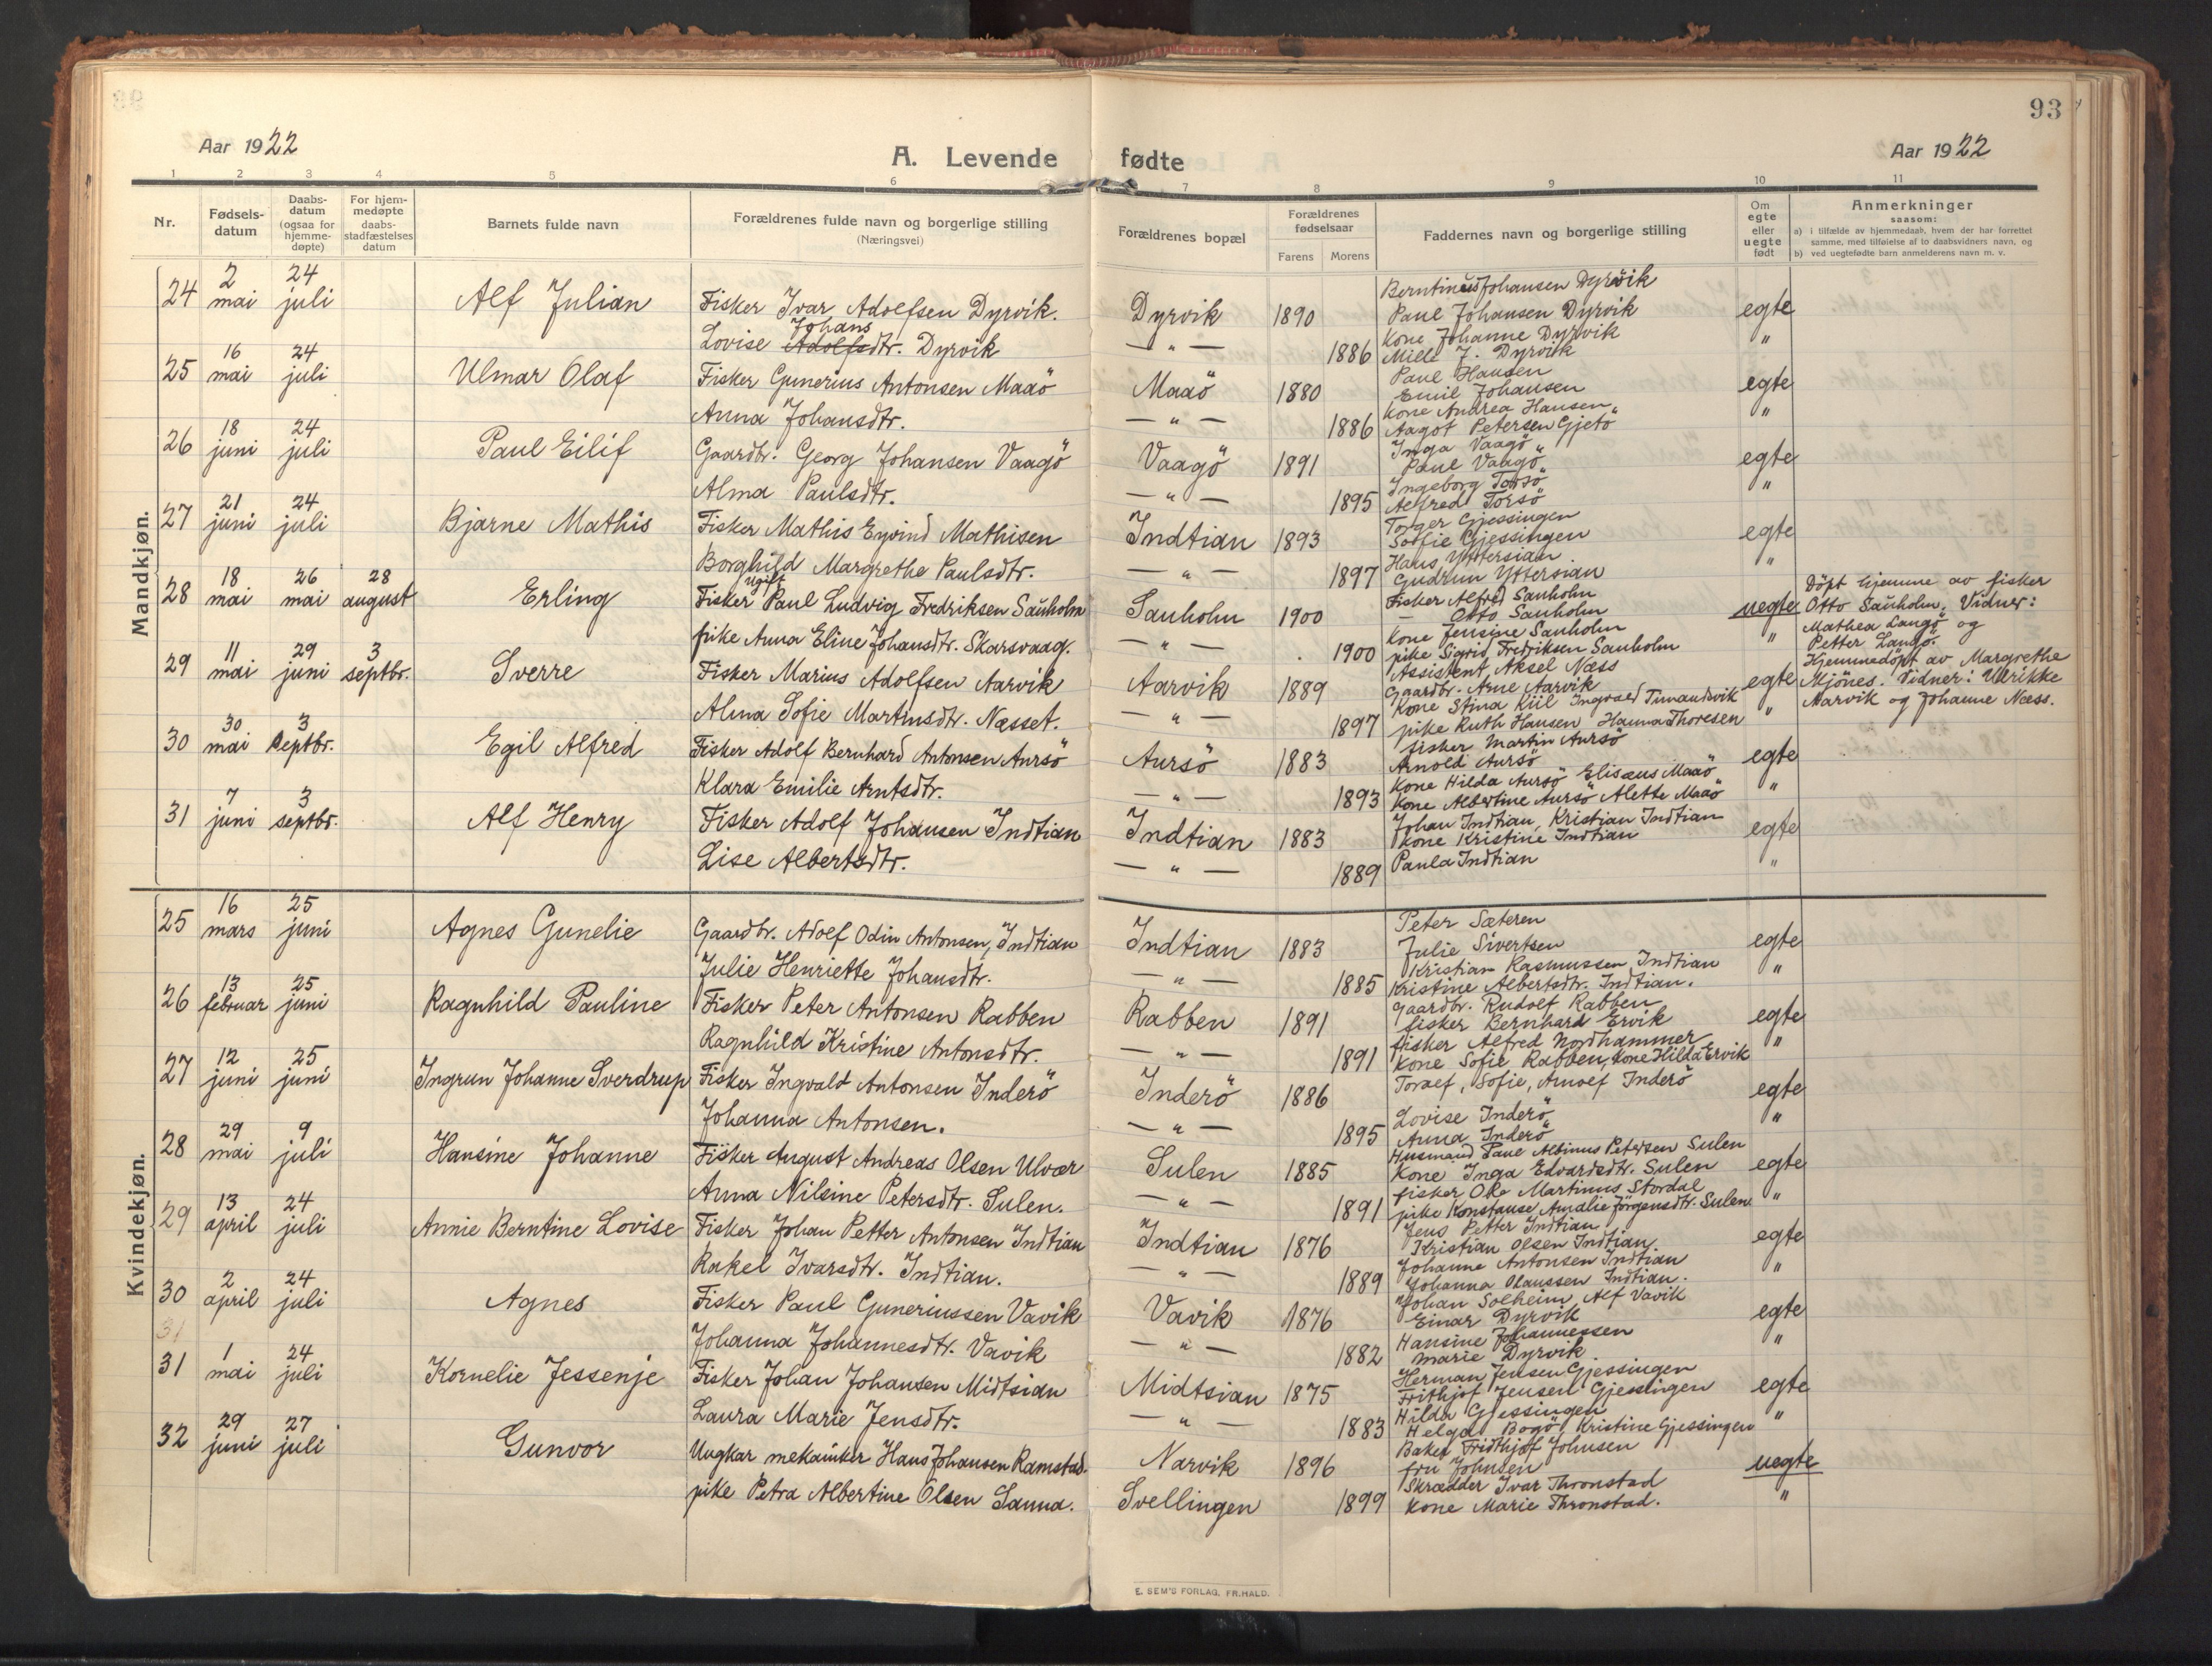 93
Aar 1922
A. Levende fødte
Aar 1922
1 2 3 4 5 6 7 8 9 10 11
Nr.
Fødsels-datum
Daabs-datum (ogsaa for hjemme-døpte)
For hjem-medøpte daabs-stadfæstelses datum
Barnets fulde navn
Forældrenes fulde navn og borgerlige stilling
(Næringsvei)
Forældrenes bopæl
Forældrenes fødselsaar
Farens Morens
Faddernes navn og borgerlige stilling
Om egte eller uegte født
Anmerkninger
saasom:
a) i tilfælde av hjemmedaab, hvem der har forrettet samme, med tilføielse af to daabsvidners navn, og
b) ved uegtefødte barn anmelderens navn m. v.
Mandkjøn.
24 2 mai 24 juli Alf Julian Fisker Ivar Adolfsen Dyrvik. Dyrvik 1890 egte
Lovise Johans Adolfsdtr. Dyrvik — " — 1886 "
Berntinus Johansen Dyrvik
Paul Johansen Dyrvik
Kone Johanne Dyrvik
J. Dyrvik
25 16 mai 24 juli Ulmar Olaf Fisker Gunerius Antonsen Maaö Maaö 1880 egte
Anna Johansdtr. — " — 1886 "
Paul Hansen
Emil Johansen
Kone Andrea Hansen
Aagot Petersen Gjetö
26 18 juni 24 juli Paul Eilif Gaardbr. Georg Johansen Vaagö Vaagö 1891 egte
Alma Paulsdtr. — " — 1895 "
Inga Vaagö
Paul Vaagö
Ingeborg Torsö
Alfred Torsö
27 21 juni 24 juli Bjarne Mathis Fisker Mathis Eyvind Mathisen Indtian 1893 egte
Borghild Margrethe Paulsdtr. — " — 1897 "
Torger Gjessingen
Sofie Gjessingen
Hans Yttersian
Gudrun Yttersian
28 18 mai 26 mai 28 august Erling Ugift Fisker Paul Ludvig Fredriksen Sauholm Sauholm 1900 uegte
pike Anna Eline Johansdtr. Skarsvaag. — " — 1900 "
Fisker Alfred Sauholm
— Otto Sauholm
Kone Jensine Sauholm
pike Sigrid Fredriksen Sauholm
Döpt hjemme av fisker
Otto Sauholm. Vidner:
Mathea Langö og
Petter Langö.
29 11 mai 29 juni 3 septbr. Sverre Fisker Marius Adolfsen Aarvik Aarvik 1889 egte
Alma Sofie Martinsdtr. Næsset. — " — 1897 "
Assistent Aksel Næss
Gaardbr. Arne Aarvik
Kone Stina Kiil Ingvald
pike Ruth Hansen Hanna Thoresen
Hjemmedöpt av Margrethe
Mjönes. Vidner: Ulrikke
Aarvik og Johanne Næss.
30 30 mai 3 septbr. Egil Alfred Fisker Adolf Bernhard Antonsen Aursö Aursö 1883 egte
Klara Emilie Arntsdtr. — " — 1893 "
fisker Martin Aursö
Arnold Aursö
Kone Hilda Aursö Elisæus Maaö
Kone Albertine Aursö Alette Maaö
31 7 juni 3 septbr. Alf Henry Fisker Adolf Johansen Indtian Indtian 1883 egte
Lise Albertsdtr. — " — 1889 "
Johan Indtian, Kristian Indtian
Kone Kristine Indtian
Paula Indtian
Kvindekjøn.
25 16 mars 25 juni Agnes Gunelie Gaardbr. Adolf Odin Antonsen, Indtian Indtian 1883 egte
Julie Henriette Johansdtr. — " — 1885 "
Peter Sæteren
Julie Sivertsen
Kristian Rasmussen Indtian
Kristine Albertsdtr. Indtian.
26 13 februar 25 juni Ragnhild Pauline Fisker Peter Antonsen Rabben Rabben 1891 egte
Ragnhild Kristine Antonsdtr. — " — 1891 "
Gaardbr. Rudolf Rabben
fisker Bernhard Ervik
fisker Alfred Nordhammer
Kone Sofie Rabben, Kone Hilda Ervik
27 12 juni 25 juni Ingrun Johanne Sverdrup Fisker Ingvald Antonsen Inderö Inderö 1886 egte
Johanna Antonsen. — " — 1895 "
Toralf, Sofie, Arnolf Inderö
Lovise Inderö
Anna Inderö
28 29 mai 9 juli Hansine Johanne Fisker August Andreas Olsen Ulvær Sulen 1885 egte
Anna Nilsine Petersdtr. Sulen. — " — 1891 "
Husmand Paul Albinus Petersen Sulen
Kone Inga Edvardsdtr. Sulen
fisker Ole Martinus Stordal
pike Konstanse Amalie Jörgensdtr. Sulen
29 13 april 24 juli Annie Berntine Lovise Fisker Johan Petter Antonsen Indtian Indtian 1876 egte
Rakel Ivarsdtr. Indtian. — " — 1889 "
Jens Petter Indtian
Kristian Olsen Indtian
Johanne Antonsen Indtian
Johanna Olaussen Indtian.
30 2 april 24 juli Agnes Fisker Paul Guneriussen Vavik Vavik 1876 egte
31
Johanna Johannesdtr. Vavik — " — 1882 "
Johan Solheim, Alf Vavik
Einar Dyrvik
Hansine Johannessen
Marie Dyrvik
31 1 mai 24 juli Kornelie Jessenje Fisker Johan Johansen Midtsian Midtsian 1875 egte
Laura Marie Jensdtr. — " — 1883 "
Herman Jensen Gjessingen
Frithjof Jensen Gjessingen
Hilda Gjessingen
Helga Bogö, Kristine Gjessingen
32 29 juni 27 juli Gunvor Ungkar mekaniker Hans Johansen Ramstad. Narvik 1896 uegte
pike Petra Albertine Olsen Sanna. Svellingen 1899 "
Baker Fridthjof Johnsen
fru Johnsen
Skrædder Ivar Thronstad
Kone Marie Thronstad.
E. SEM'S FORLAG, FR.HALD.